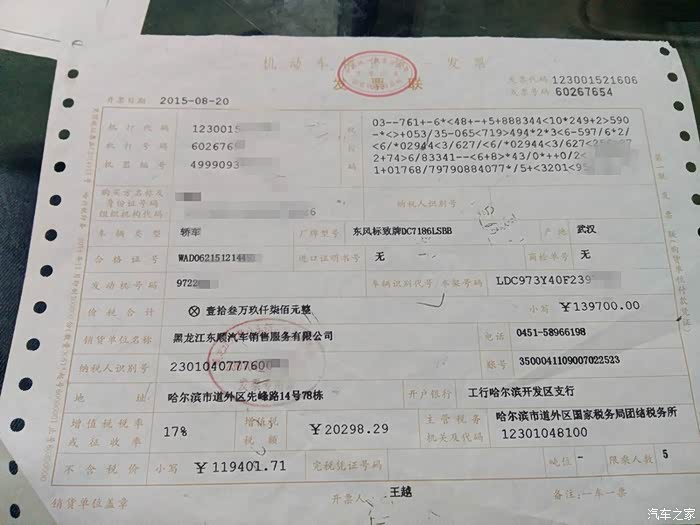 机动车销售统一发票
发票联
发票代码 123001521606
发票号码 60267654
开票日期 2015-08-20
机打代码 1230015
机打号码 602676
机器编号 4999093
税控码
03--761+-6*<48+-+5+888344<10*249+2>590
-*<>+053/35-065<719>494*2*3<6-597/6*2/
<6/*02944<3/627/<6/*02944<3/627<
2+74>6/83341--<6+8>*43/0*++0/2<
1+01768/79790884077*/5+<3201<95
购买方名称及
身份证号码/
组织机构代码 6
纳税人识别号
车辆类型 轿车 厂牌型号 东风标致牌DC7186LSBB 产地 武汉
合格证号 WAD06215121445 进口证明书号 无 商检单号 无
发动机号码 972 车辆识别代号/车架号码 LDC973Y40F239
价税合计 ⊗壹拾叁万玖仟柒佰元整 小写 ¥139700.00
销货单位名称 黑龙江东顺汽车销售服务有限公司 电话 0451-58966198
纳税人识别号 2301040777600 账号 3500041109007022523
地址 哈尔滨市道外区先峰路14号78栋 开户银行 工行哈尔滨开发区支行
增值税税率
或征收率 17% 增值税
税额 ¥20298.29 主管税务
机关及代码 哈尔滨市道外区国家税务局团结税务所
12301048100
不含税价 小写 ¥119401.71 完税凭证号码 吨位 - 限乘人数 5
销货单位盖章 开票人 王越 备注:一车一票
第一联 发票联(购货单位付款凭证)
汽车之家